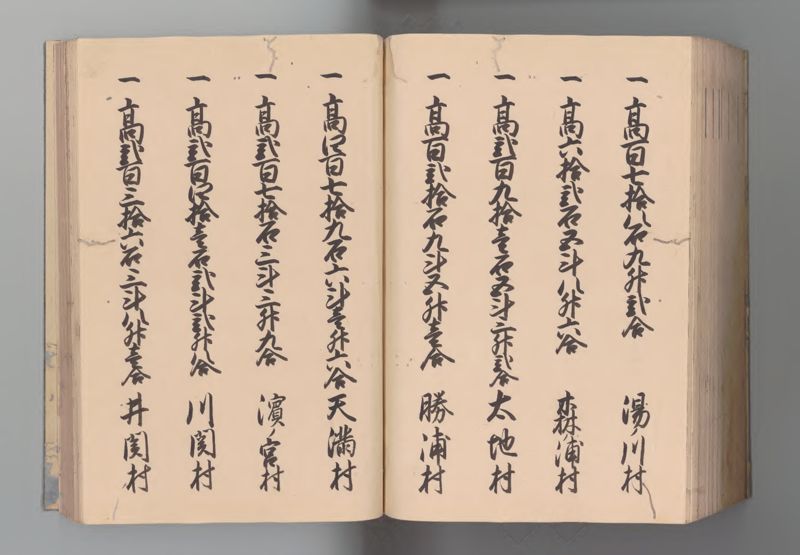 一 高百七拾八石九升弐合 湯川村
一 高六拾弐石五斗八升六合 森浦村
一 高弐百九拾壱石五斗三升弐合 太地村
一 高百弐拾石九斗五升壱合 勝浦村
一 高四百七拾九石六斗壱升六合 天満村
一 高弐百七拾石三斗三升九合 濱ノ宮村
一 高弐百四拾壱石弐斗弐升八合 川関村
一 高弐百三拾六石三斗八升壱合 井関村